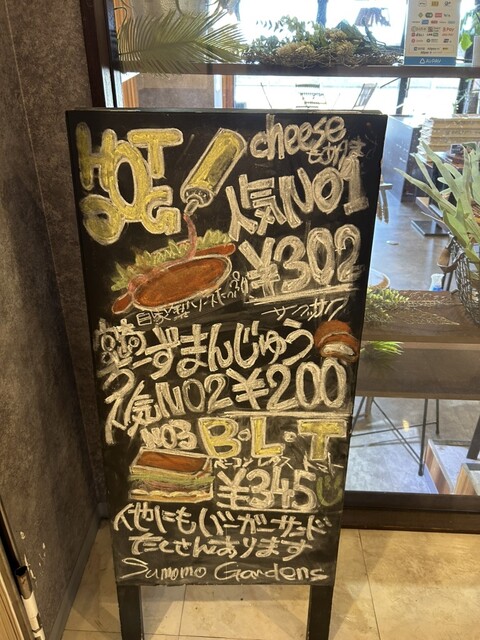 HOT DOG
cheese
もあります
人気NO1
¥302
自家製ソース
サクッサク
ずまんじゅう
人気NO2 ¥200
NO3 B・L・T
ベーコン レタス トマト
¥345
他にもバーガーサンド
たくさんあります
Sumomo Gardens